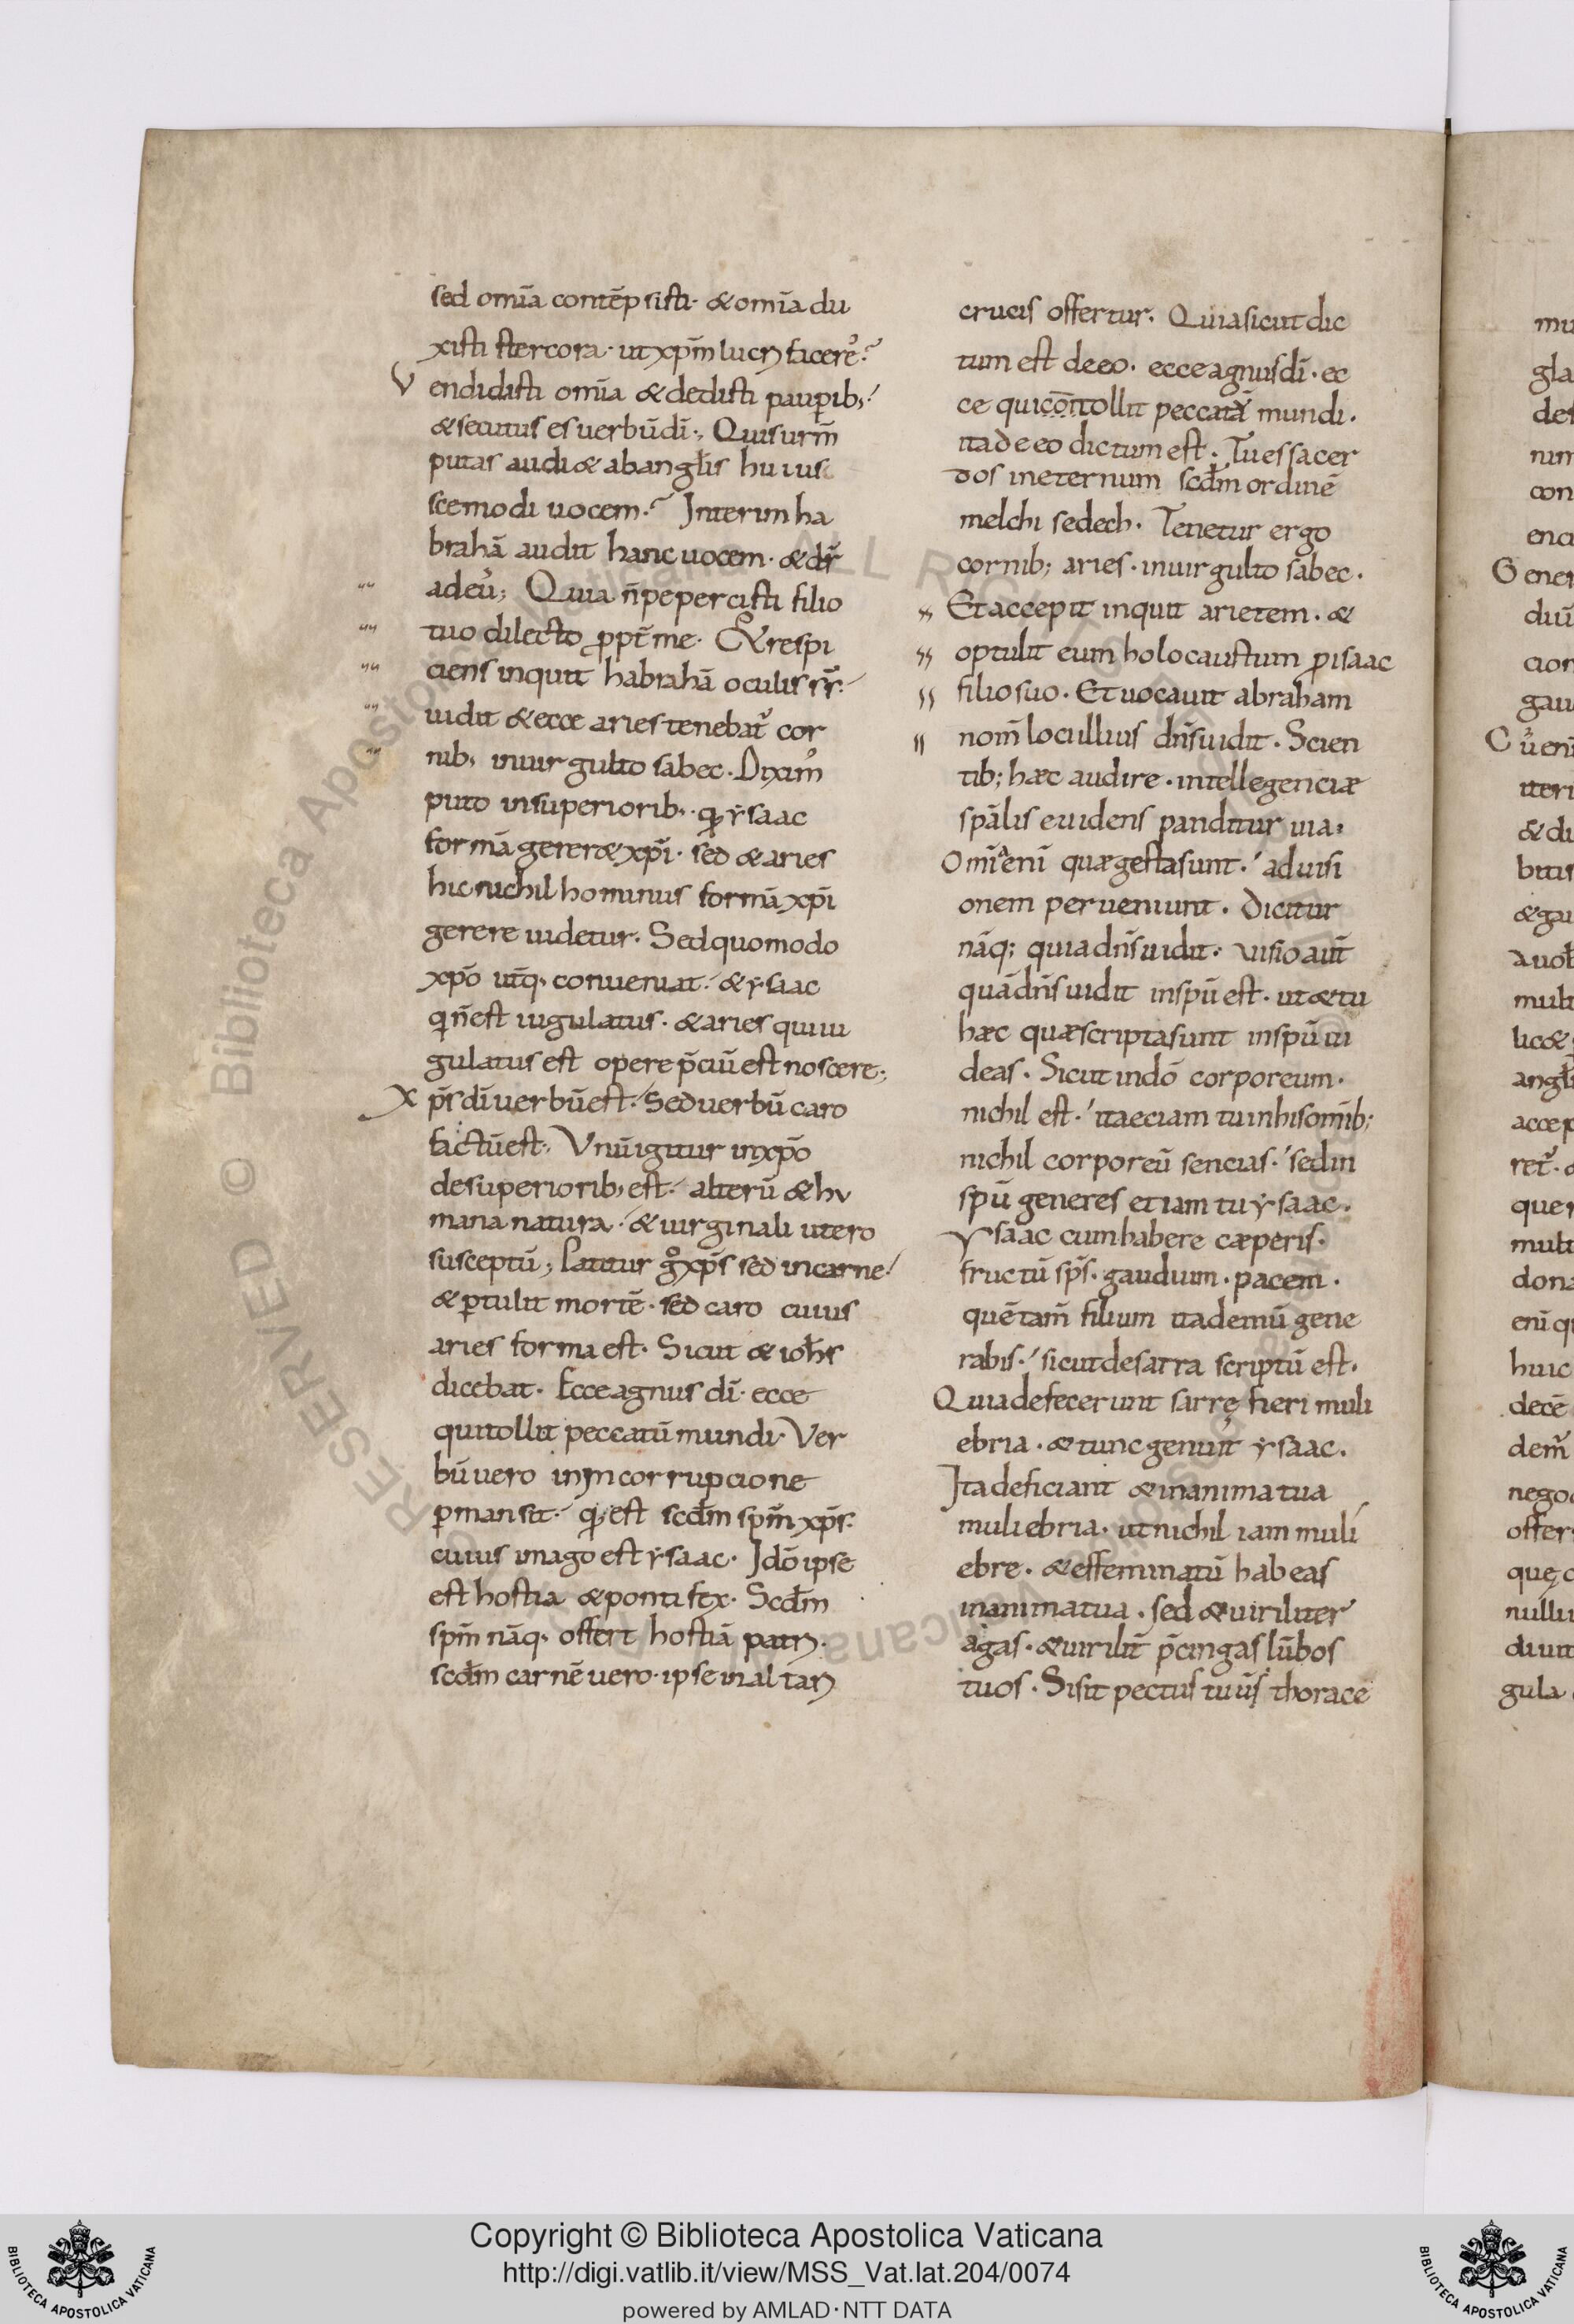 sed om̄ia contēpsisti· & om̄ia du
xisti stercora· ut xp̄m lucri facere᷒?
Vendidisti om̄ia & dedisti paup̱ib;·
& secutus es uerbū dī·, Quis urm̄
putas audi& ab angłis huius
scemodi uocem·? Interim ha
brahā audit hanc uocem· & dr̄
adeū; Quia n̄ pepercisti filio
tuo dilecto ꝓpt̄ me· Et respi
ciens inquit habrahā oculis
uidit & ecce aries tenebat᷒ cor
nib; in uirgulto sabec· Dixim᷒
puto in superiorib;· qd ysaac
formā gerer& xp̄i· sed & aries
hic nichilhominus formā xp̄i
gerere uidetur· Sed quomodo
xp̄o ut̄q; conueniat· & ysaac
qui n̄ est iugulatus· & aries qui iu
gulatus est opere p̄ciū est noscere;
Xp̄s dī uerbū est· Sed uerbū caro
factū est·, Vnū igitur in xp̄o
de superiorib; est· alterū & hu
mana natura· & uirginali utero
susceptū; Patitur g̊ xp̄s sed in carne·
& ꝑtulit mortē· sed caro cuius
aries forma est· Sicut & ioħs
dicebat· Ecce agnus dī· ecce
qui tollit peccatū mundi· Ver
bū uero in incorrupcione
ꝑmansit· qd est scd̄m sp̄m xp̄s·
cuius imago est ysaac· Idō ipse
est hostia & pontifex· Scd̄m
sp̄m nāq; offert hostiā patri·
scd̄m carnē uero· ipse in altari
crucis offertur· Quia sicut dic
tum est de eo· ecce agnus dī· ec
ce qui tollit peccata mundi·
ita de eo dictum est· Tu es sacer
dos in eternum scd̄m ordinē
melchisedech· Tenetur ergo
cornib; aries· in uirgulto sabec·
Et accepit inquit arietem· &
optulit eum holocaustum ꝓ isaac
filio suo· Et uocauit abraham
nom̄ loci illius dn̄s uidit· Scien
tib; hæc audire· intellegenciæ
sp̄alis euidens panditur uia·
Om̄ia enī quæ gesta sunt·' ad uisi
onem perueniunt· Dicitur
nāq; quia dn̄s uidit· uisio aut̄
quā dn̄s uidit in sp̄u est· ut & tu
hæc quæ scripta sunt in sp̄u ui
deas· Sicut in dō corporeum·
nichil est·' ita eciam tu in his om̄ib;
nichil corporeū sencias·' sed in
sp̄u generes etiam tu ysaac·
Ysaac cum habere cæperis·
fructū sp̄s· gaudium· pacem·
quē tam̄ filium ita demū gene
rabis·' sicut de sarra scriptū est·
Quia defecerunt sarrę fieri muli
ebria· & tunc genuit ysaac·
Ita deficiant & in anima tua
muliebria· ut nichil iam muli
ebre· & effeminatū habeas
in anima tua· sed & uiriliter
agas· & uirilit̄ p̄cingas lūbos
tuos· Si sit pectus tuū thorace
Copyright © Biblioteca Apostolica Vaticana
http://digi.vatlib.it/view/MSS_Vat.lat.204/0074
powered by AMLAD·NTT DATA